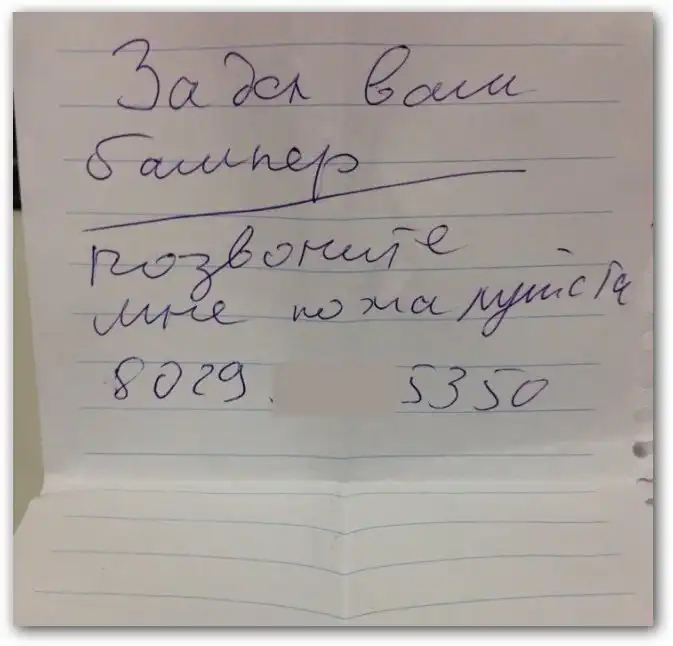 Задел вам
бампер
позвоните
мне пожалуйста
8029. 5350